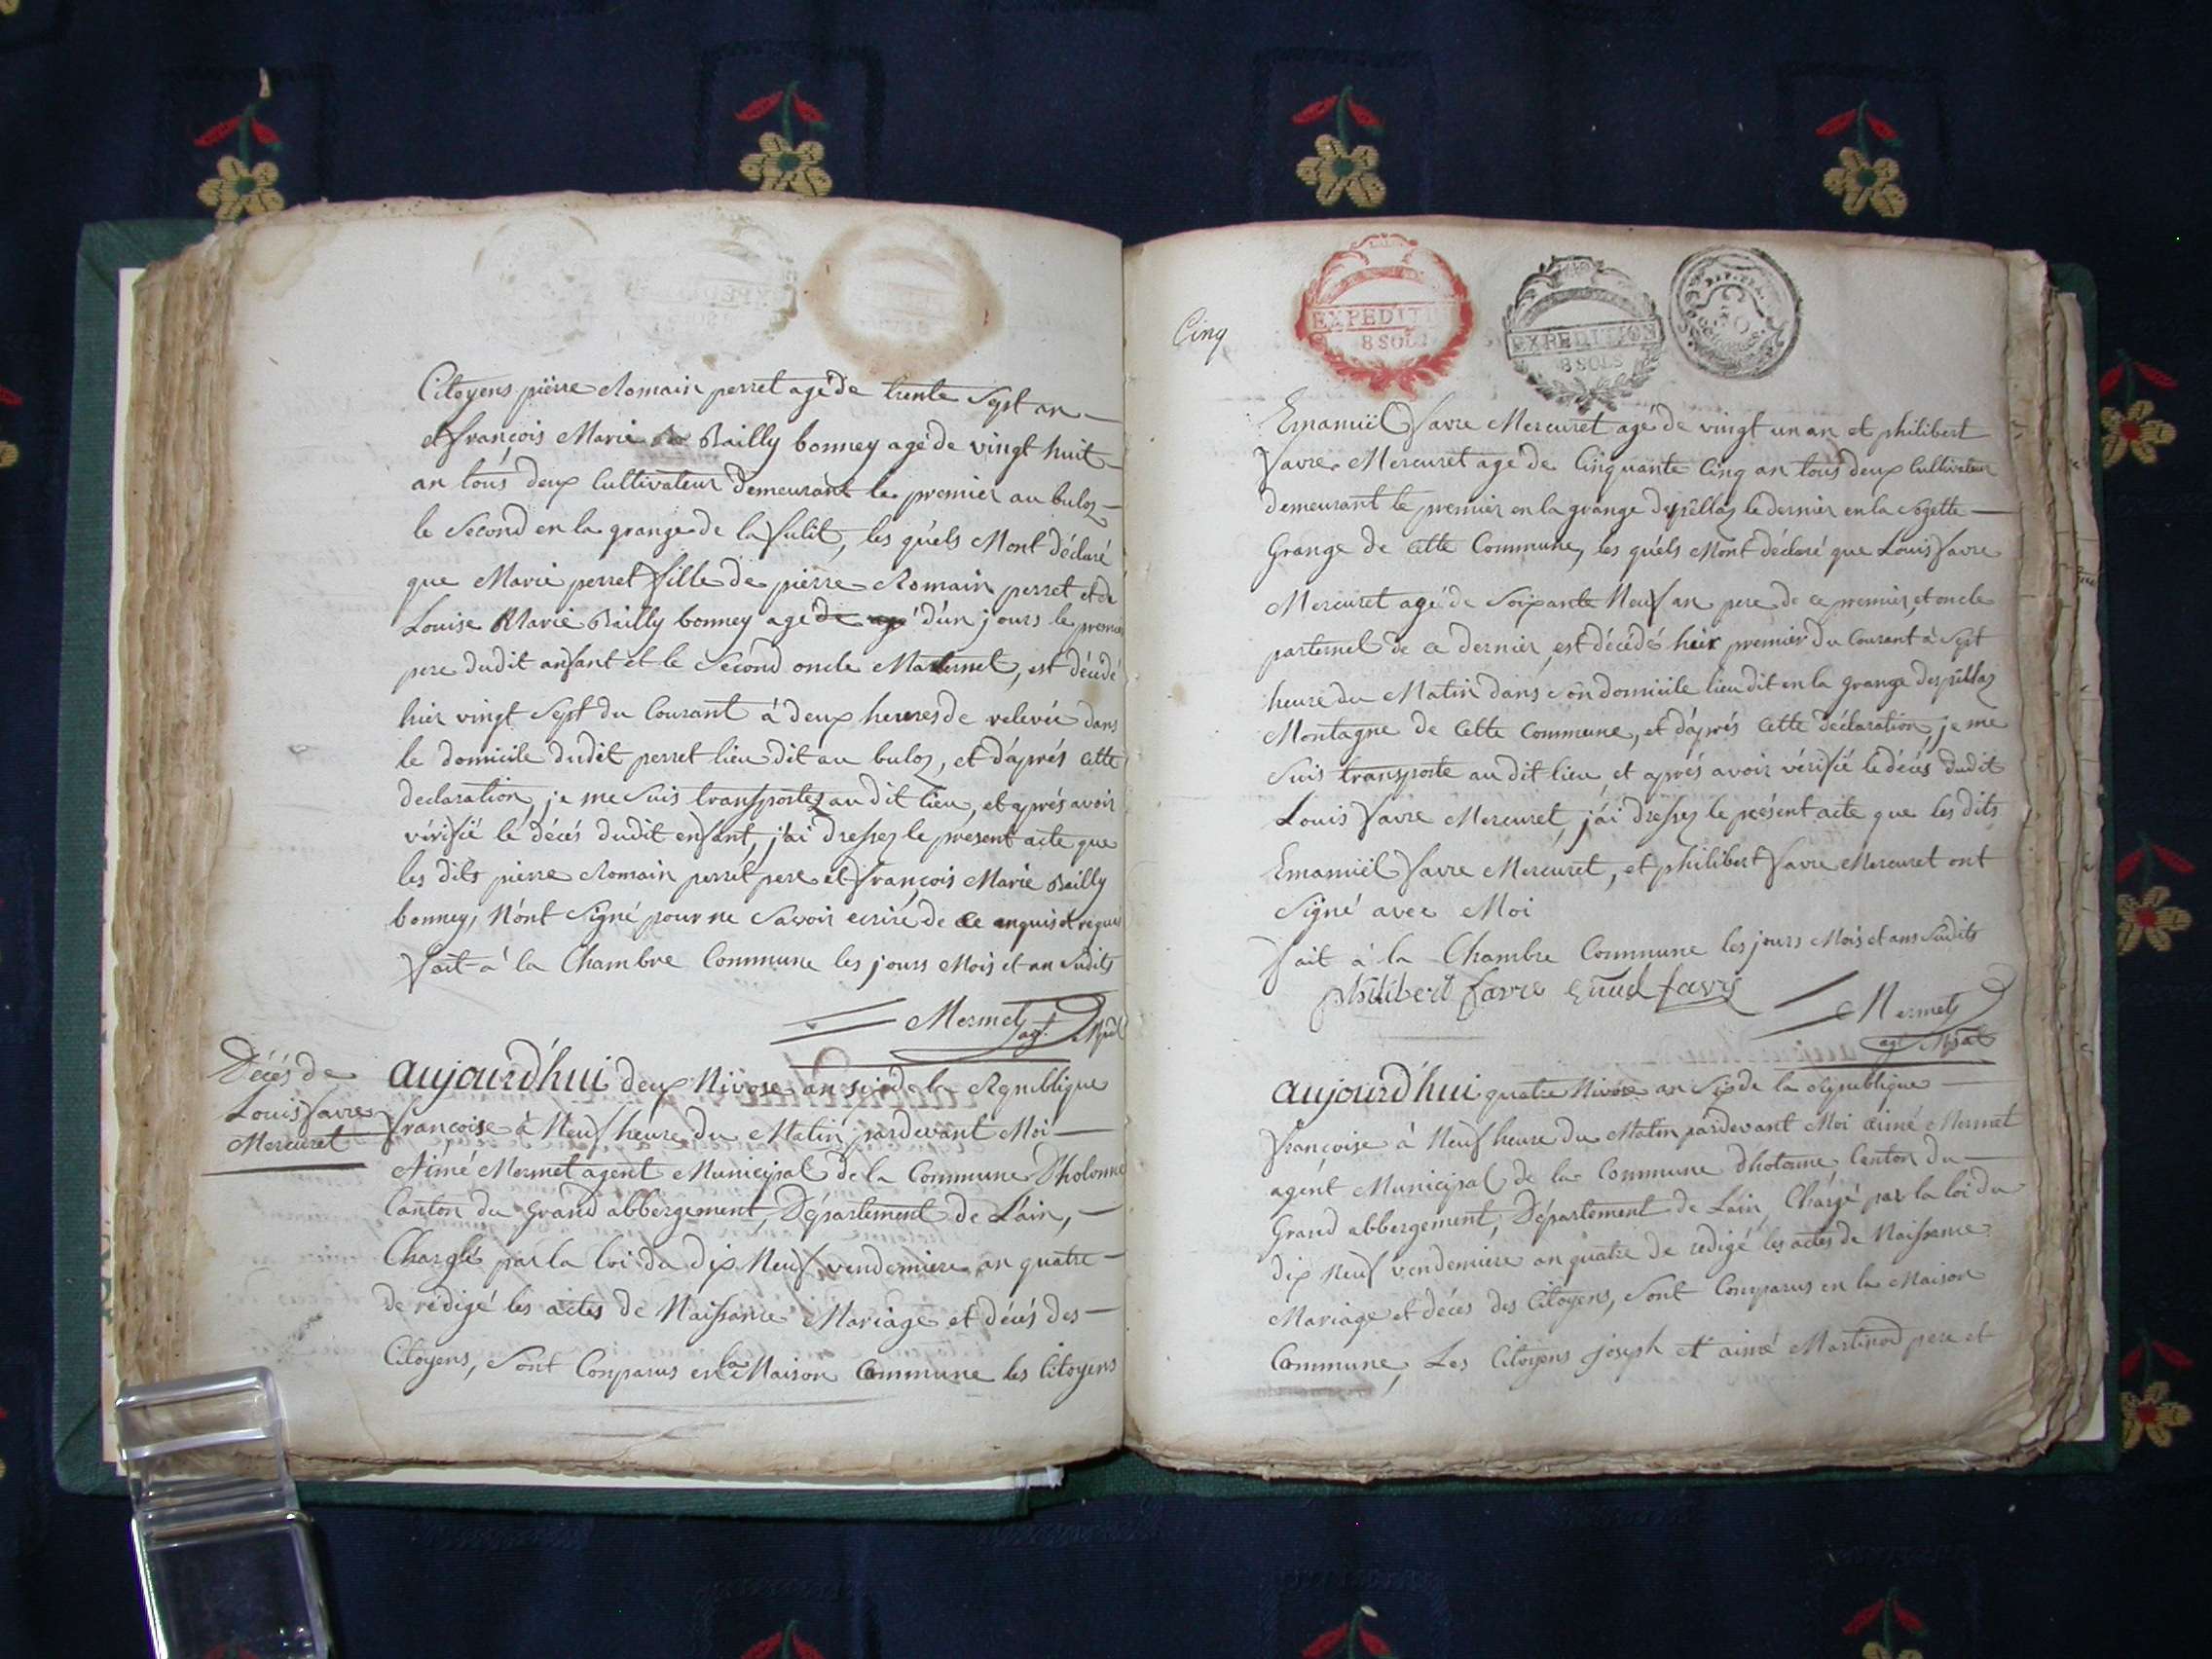 Citoyens pierre Romain perret agé de trente Sept an
et françois Marie Bailly bonney agé de vingt huit
an tous deux Cultivateur demeurant le premier au buloz
le Second en la grange de la, les quels Mont déclaré
que Marie perret fille de pierre Romain perret et de
Louise Marie Bailly bonney agé d'un jours le premier
pere dudit anfant et le Second oncle Maternel, est décédé
hier vingt Sept du Courant à deux heures de relevée dans
le domicile dudit perret lieu dit au buloz, et d'aprés cette
declaration, je me suis transportez au dit lieu, et aprés avoir
vérifié le décés dudit enfant, j'ai dressez le present acte que
les dits pierre Romain perret pere et françois Marie Bailly
bonney, n'ont Signé pour ne Savoir ecrire de ce enquis et requis
fait à la Chambre Commune les jours Mois et an Sudits
Mermet agt. Mpal
Décés de
Louis favre
Mercuret
aujourd'hui deux Nivose an six de la Republique
françoise à Neuf heure du Matin pardevant Moi
Aimé Mermet agent Municipal de la Commune D'hotonne
Canton du Grand abbergement, Département de L'ain,
Chargé par la loi du dix Neuf vendemiere an quatre
de rédigé les actes de Naissance Mariage et décés des
Citoyens, Sont Comparus en la Maison Commune les Citoyens
Cinq
EXPEDITION
8 SOLS
EXPEDITION
8 SOLS
Emanuël favre Mercuret agé de vingt un an et philibert
favre Mercuret agé de Cinquante Cinq an tous deux Cultivateur
demeurant le premier en la grange despellaz le dernier en la
Grange de Cette Commune, les quels Mont déclaré que Louis favre
Mercuret agé de Soixante Neuf an pere de ce premier et oncle
parternel de ce dernier, est décédé hier premier du Courant à Sept
heure du Matin dans Son domicile lieu dit en la grange despellaz
Montagne de Cette Commune, et d'aprés Cette déclaration, je me
Suis transporte au dit lieu, et aprés avoir vérifié le décés dudit
Louis favre Mercuret, j'ai dressez le présent acte que les dits
Emanuël favre Mercuret, et philibert favre Mercuret ont
Signé avec Moi
fait à la Chambre Commune les jours Mois et ans Sudits
philibert favre favre
Mermet
agt Mpal
aujourd'hui quatre Nivose an Six de la Republique
françoise à Neuf heure du Matin pardevant Moi aimé Mermet
agent Municipal de la Commune d'hotonne Canton du
Grand abbergement, Département de L'ain, Chargé par la loi du
dix Neuf vendemiere an quatre de redigé les actes de Naissance
Mariage et décés des Citoyens, Sont Comparus en la Maison
Commune, Les Citoyens joseph et aimé Martinod pere et